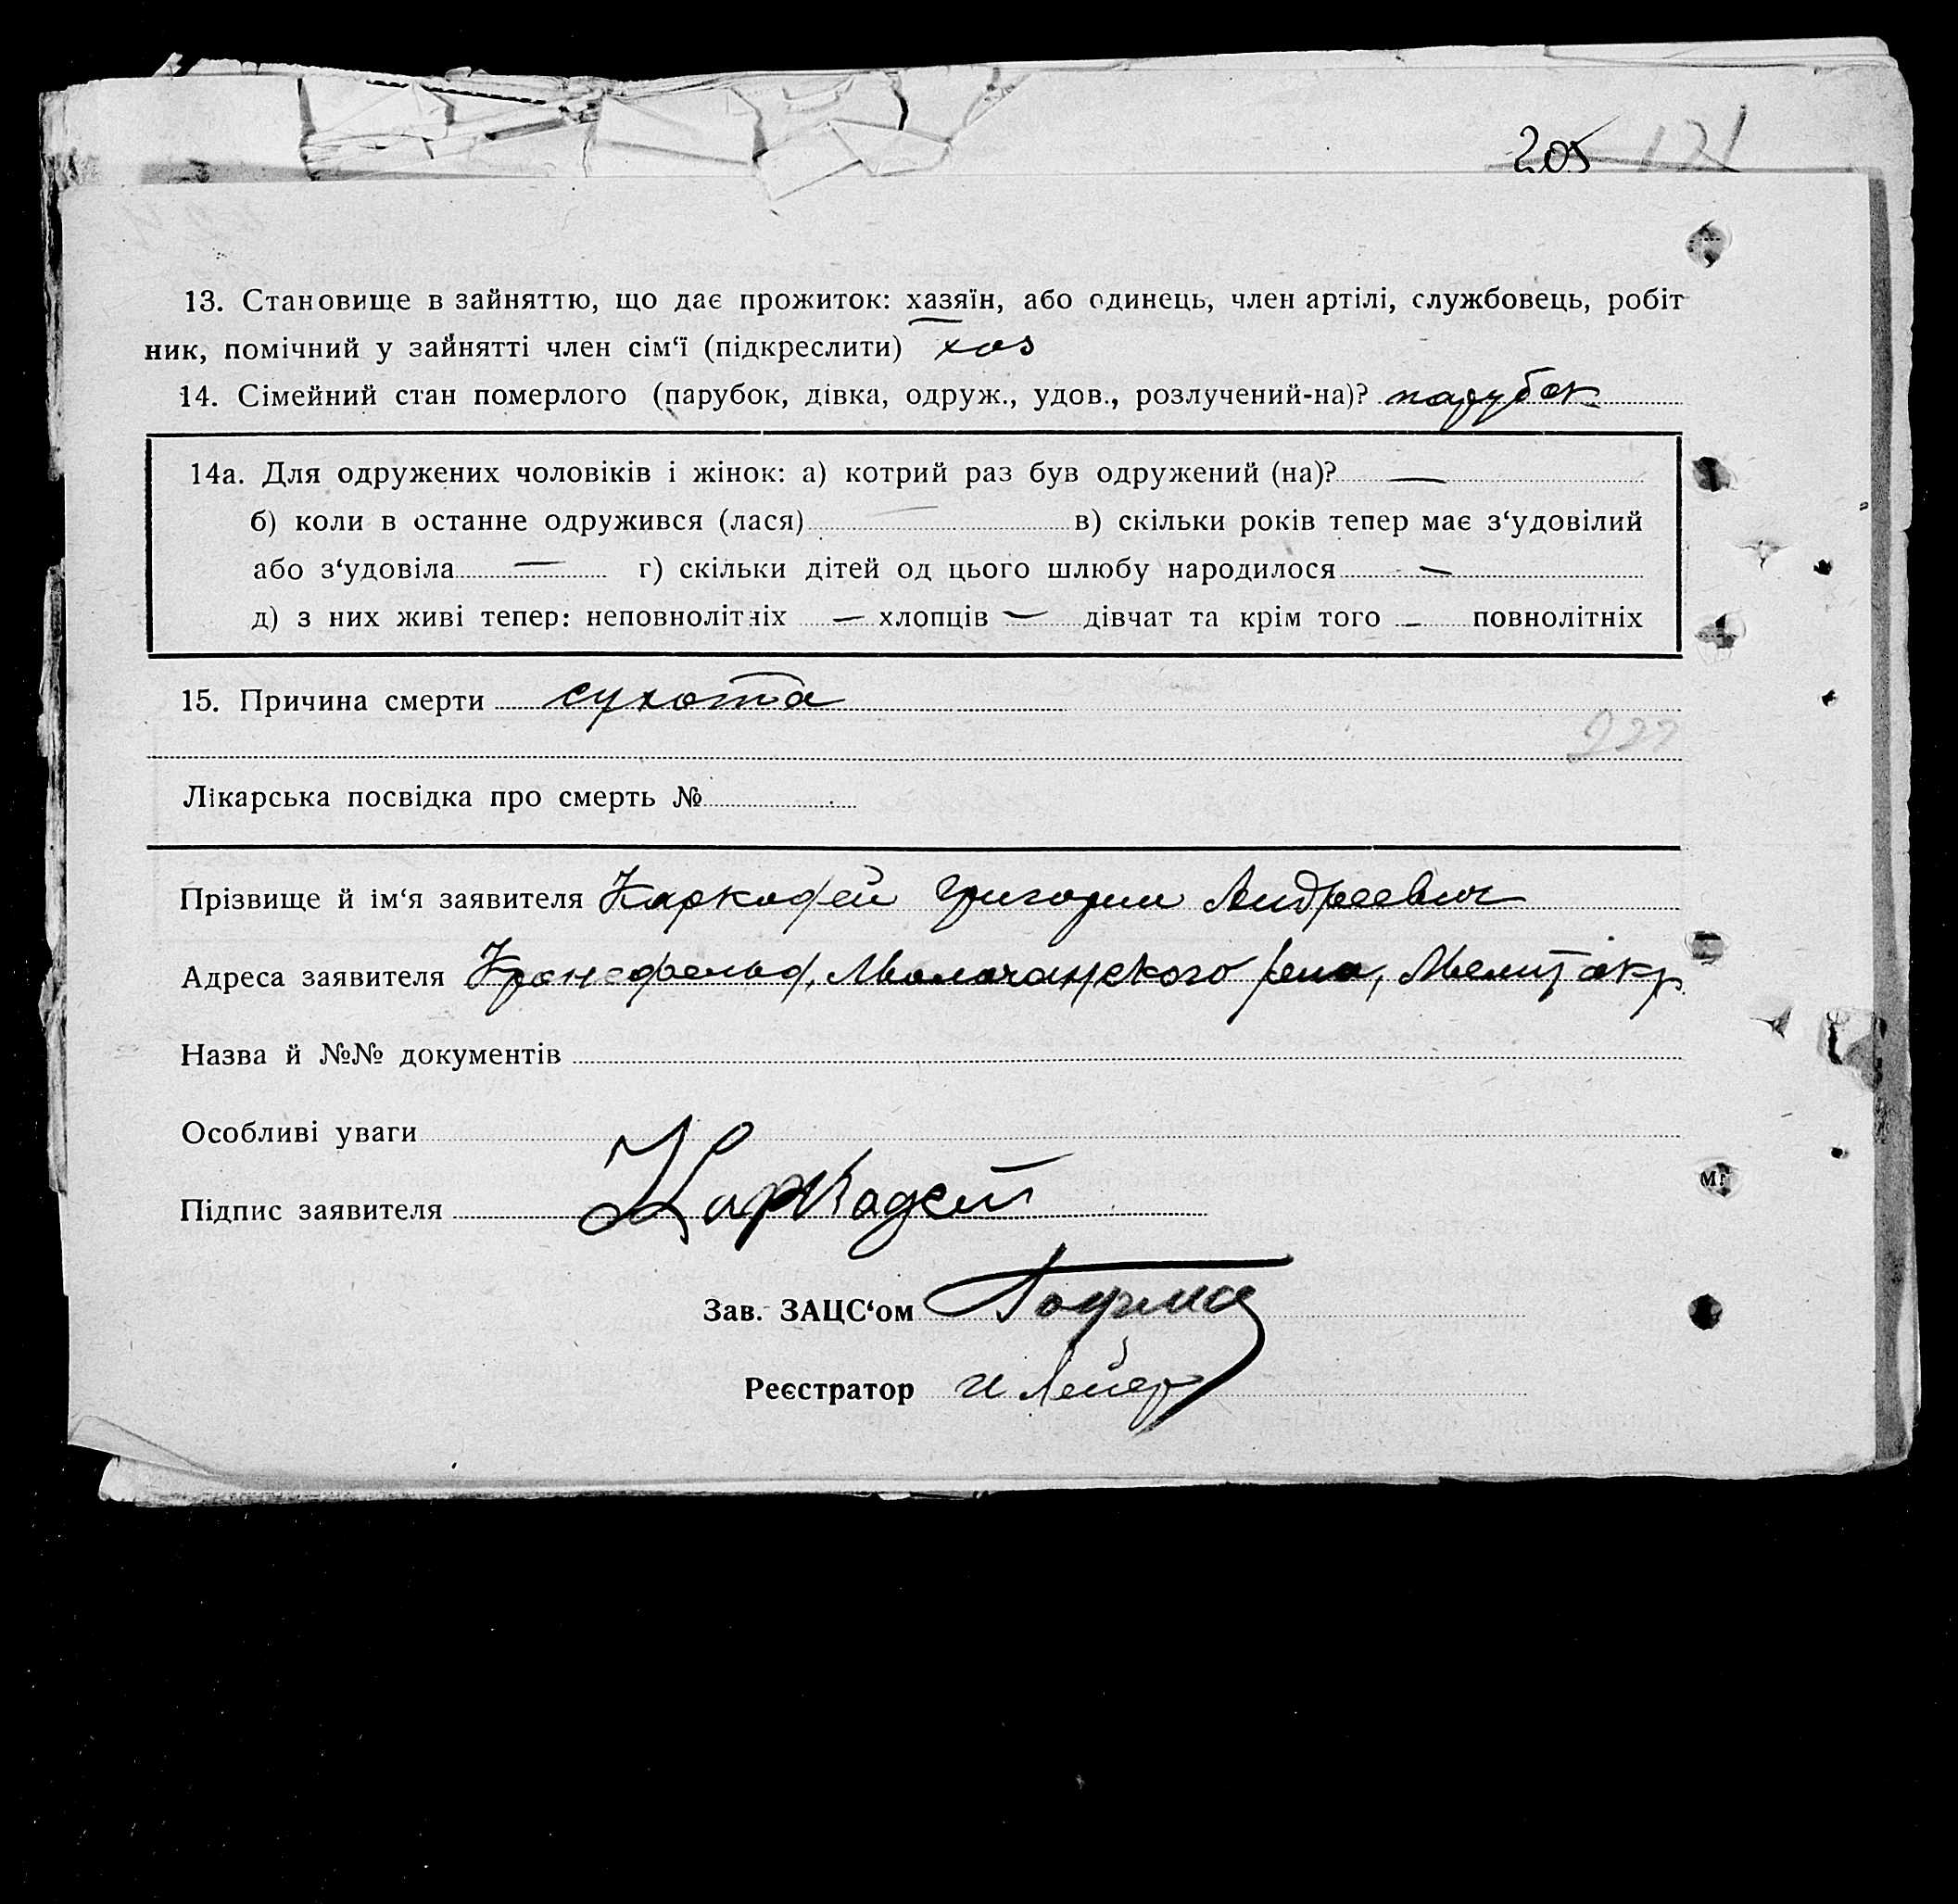 205 121
13. Становище в зайняттю, що дає прожиток: хазяїн, або одинець, член артілі, службовець, робіт
ник, помічний у зайнятті член сім‘ї (підкреслити) хоз
14. Сімейний стан померлого (парубок, дівка, одруж., удов., розлучений-на)? парубок
14а. Для одружених чоловіків і жінок: а) котрий раз був одружений (на)? —
б) коли в останне одружився (лася) — в) скільки років тепер має з‘удовілий
або з‘удовіла — г) скільки дітей од цього шлюбу народилося —
д) з них живі тепер: неповнолітніх — хлопців — дівчат та крім того — повнолітніх
15. Причина смерти сухота
222
Лікарська посвідка про смерть №
Прізвище й ім‘я заявителя Каркадей Григорий Андреевич
Адреса заявителя Кронсфельд, Молочанского рена, Мелит окр
Назва й №№ документів
Особливі уваги
Підпис заявителя Каркадей
Зав. ЗАЦС‘ом
Реєстратор